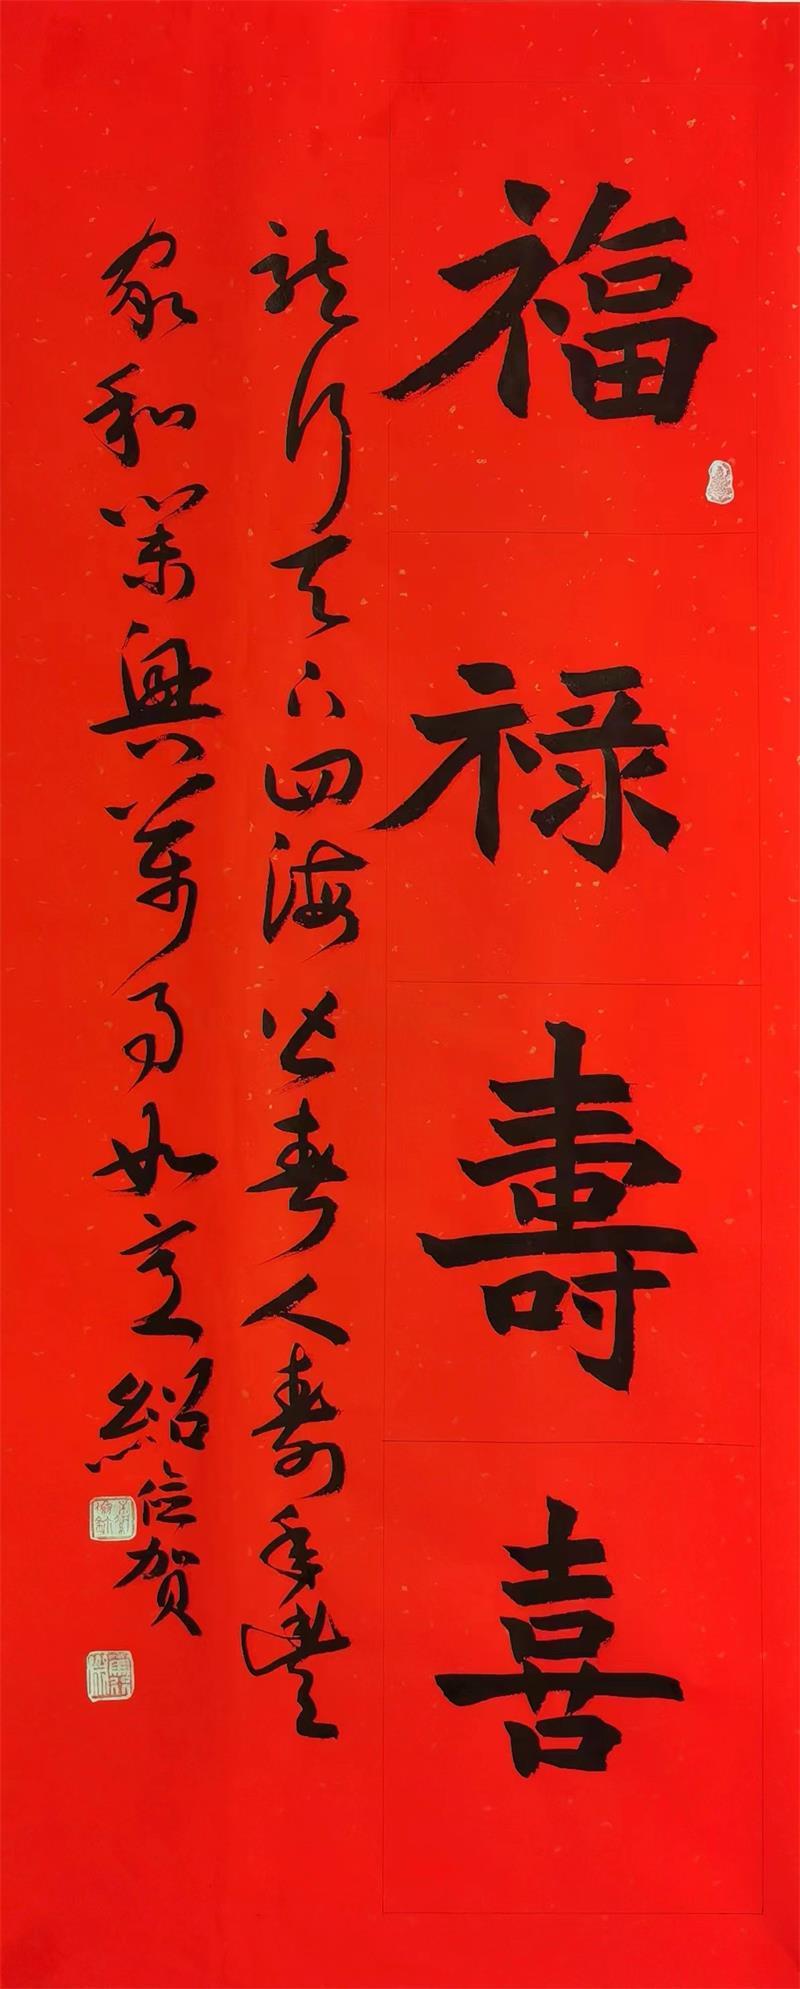 福禄壽喜
龍行天下四海皆春人壽年豐
家和業興萬事如意紹賀